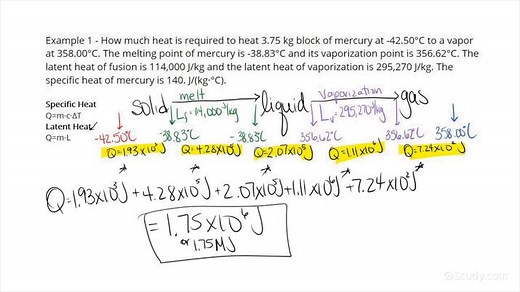 Example 1 - How much heat is required to heat 3.75 kg block of mercury at -42.50°C to a vapor
at 358.00°C. The melting point of mercury is -38.83°C and its vaporization point is 356.62°C. The
latent heat of fusion is 114,000 J/kg and the latent heat of vaporization is 295,270 J/kg. The
specific heat of mercury is 140. J/(kg·°C).
melt Vaporization
Specific Heat solid liquid gas
Q=m·c·ΔT Lf=114,000 J/kg Lv=295,270 J/kg
Latent Heat
Q=m·L -42.50°C -38.83°C -38.83°C 356.62°C 356.62°C 358.00°C
Q=1.93x10³J Q=4.28x10⁵J Q=2.07x10⁵J Q=1.11x10⁶J Q=7.24x10²J
Q=1.93x10³J+4.28x10⁵J+2.07x10⁵J+1.11x10⁶J+7.24x10²J
=1.75x10⁶J
or 1.75MJ
Study.com